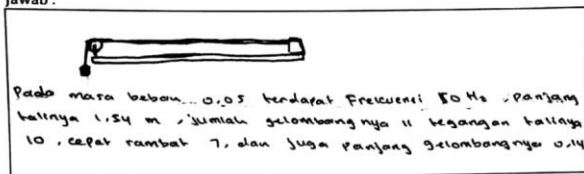 jawab :
Pada masa beban 0,05 terdapat Frekuensi 50 Hz, panjang
talinya 1,54 m, jumlah gelombangnya 11 tegangan talinya
10, cepat rambat 7, dan juga panjang gelombangnya 0,14